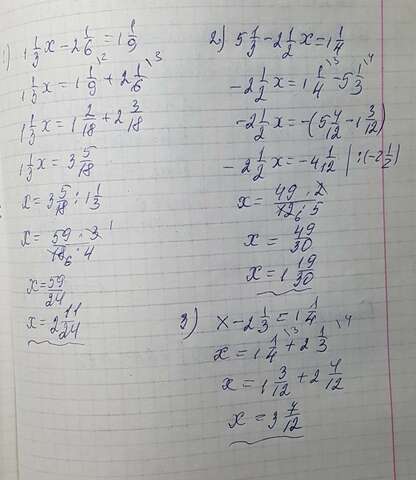 1) 1 1/3 x - 2 1/6 = 1 1/9
1 1/3 x = 1 1/9 \2 + 2 1/6 \3
1 1/3 x = 1 2/18 + 2 3/18
1 1/3 x = 3 5/18
x = 3 5/18 : 1 1/3
x = 59 · 3 1 / 18 6 · 4
x = 59/24
x = 2 11/24
2) 5 1/3 - 2 1/2 x = 1 1/4
- 2 1/2 x = 1 1/4 \3 - 5 1/3 \4
- 2 1/2 x = -(5 4/12 - 1 3/12)
- 2 1/2 x = -4 1/12 | : (-2 1/2)
x = 49 · 2 / 12 6 · 5
x = 49/30
x = 1 19/30
3) x - 2 1/3 = 1 1/4
x = 1 1/4 \3 + 2 1/3 \4
x = 1 3/12 + 2 4/12
x = 3 7/12